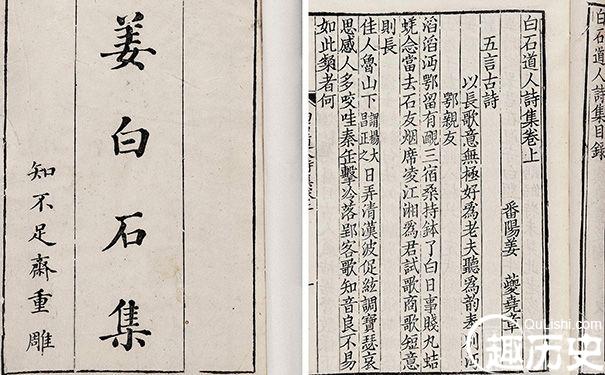 姜白石集
知不足齋重雕
白石道人詩集目錄
白石道人詩集卷上
番陽姜 夔堯章
五言古詩
以長歌意無極好為老夫聽為韵奉別沔
鄂親友
滔滔沔鄂留有靦三宿桑持鉢了白日事賤丸蛣
蜣念當去石友烟席凌江湘為君試歌商歌短意
則長
佳人魯山下謂楊大昌正之日弄清漢波促絃調寶瑟哀
思感人多咬哇秦缶擊冷落郢客歌知音良不易
如此纇者何
QuLishi.com
趣历史